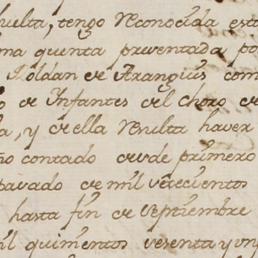 huelta, tengo reconocida esta
ma quenta presentada po
Roldan de Aranguis com
o de Infantes del Choro de
a, y de ella resulta haver
ño contado desde primero
tavado de mil setecientos
hasta fin de septiembre
mil quinientos sesenta y un